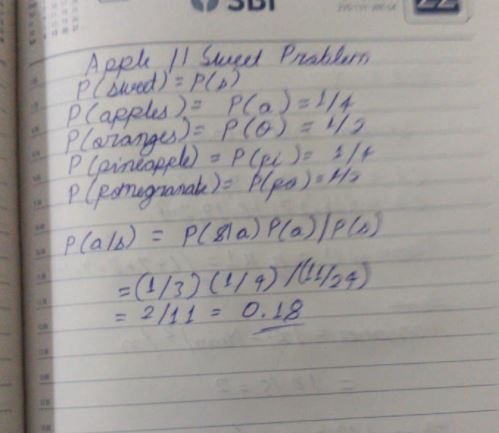 SBI
22
Apple // Sweet Problem
P(sweet) = P(s)
P(apples) = P(a) = 1/4
P(oranges) = P(O) = 1/2
P(pineapple) = P(pi) = 1/4
P(pomegranate) = P(po) = 1/2
P(a/s) = P(s|a) P(a) / P(s)
= (1/3) (1/4) / (11/24)
= 2/11 = 0.18